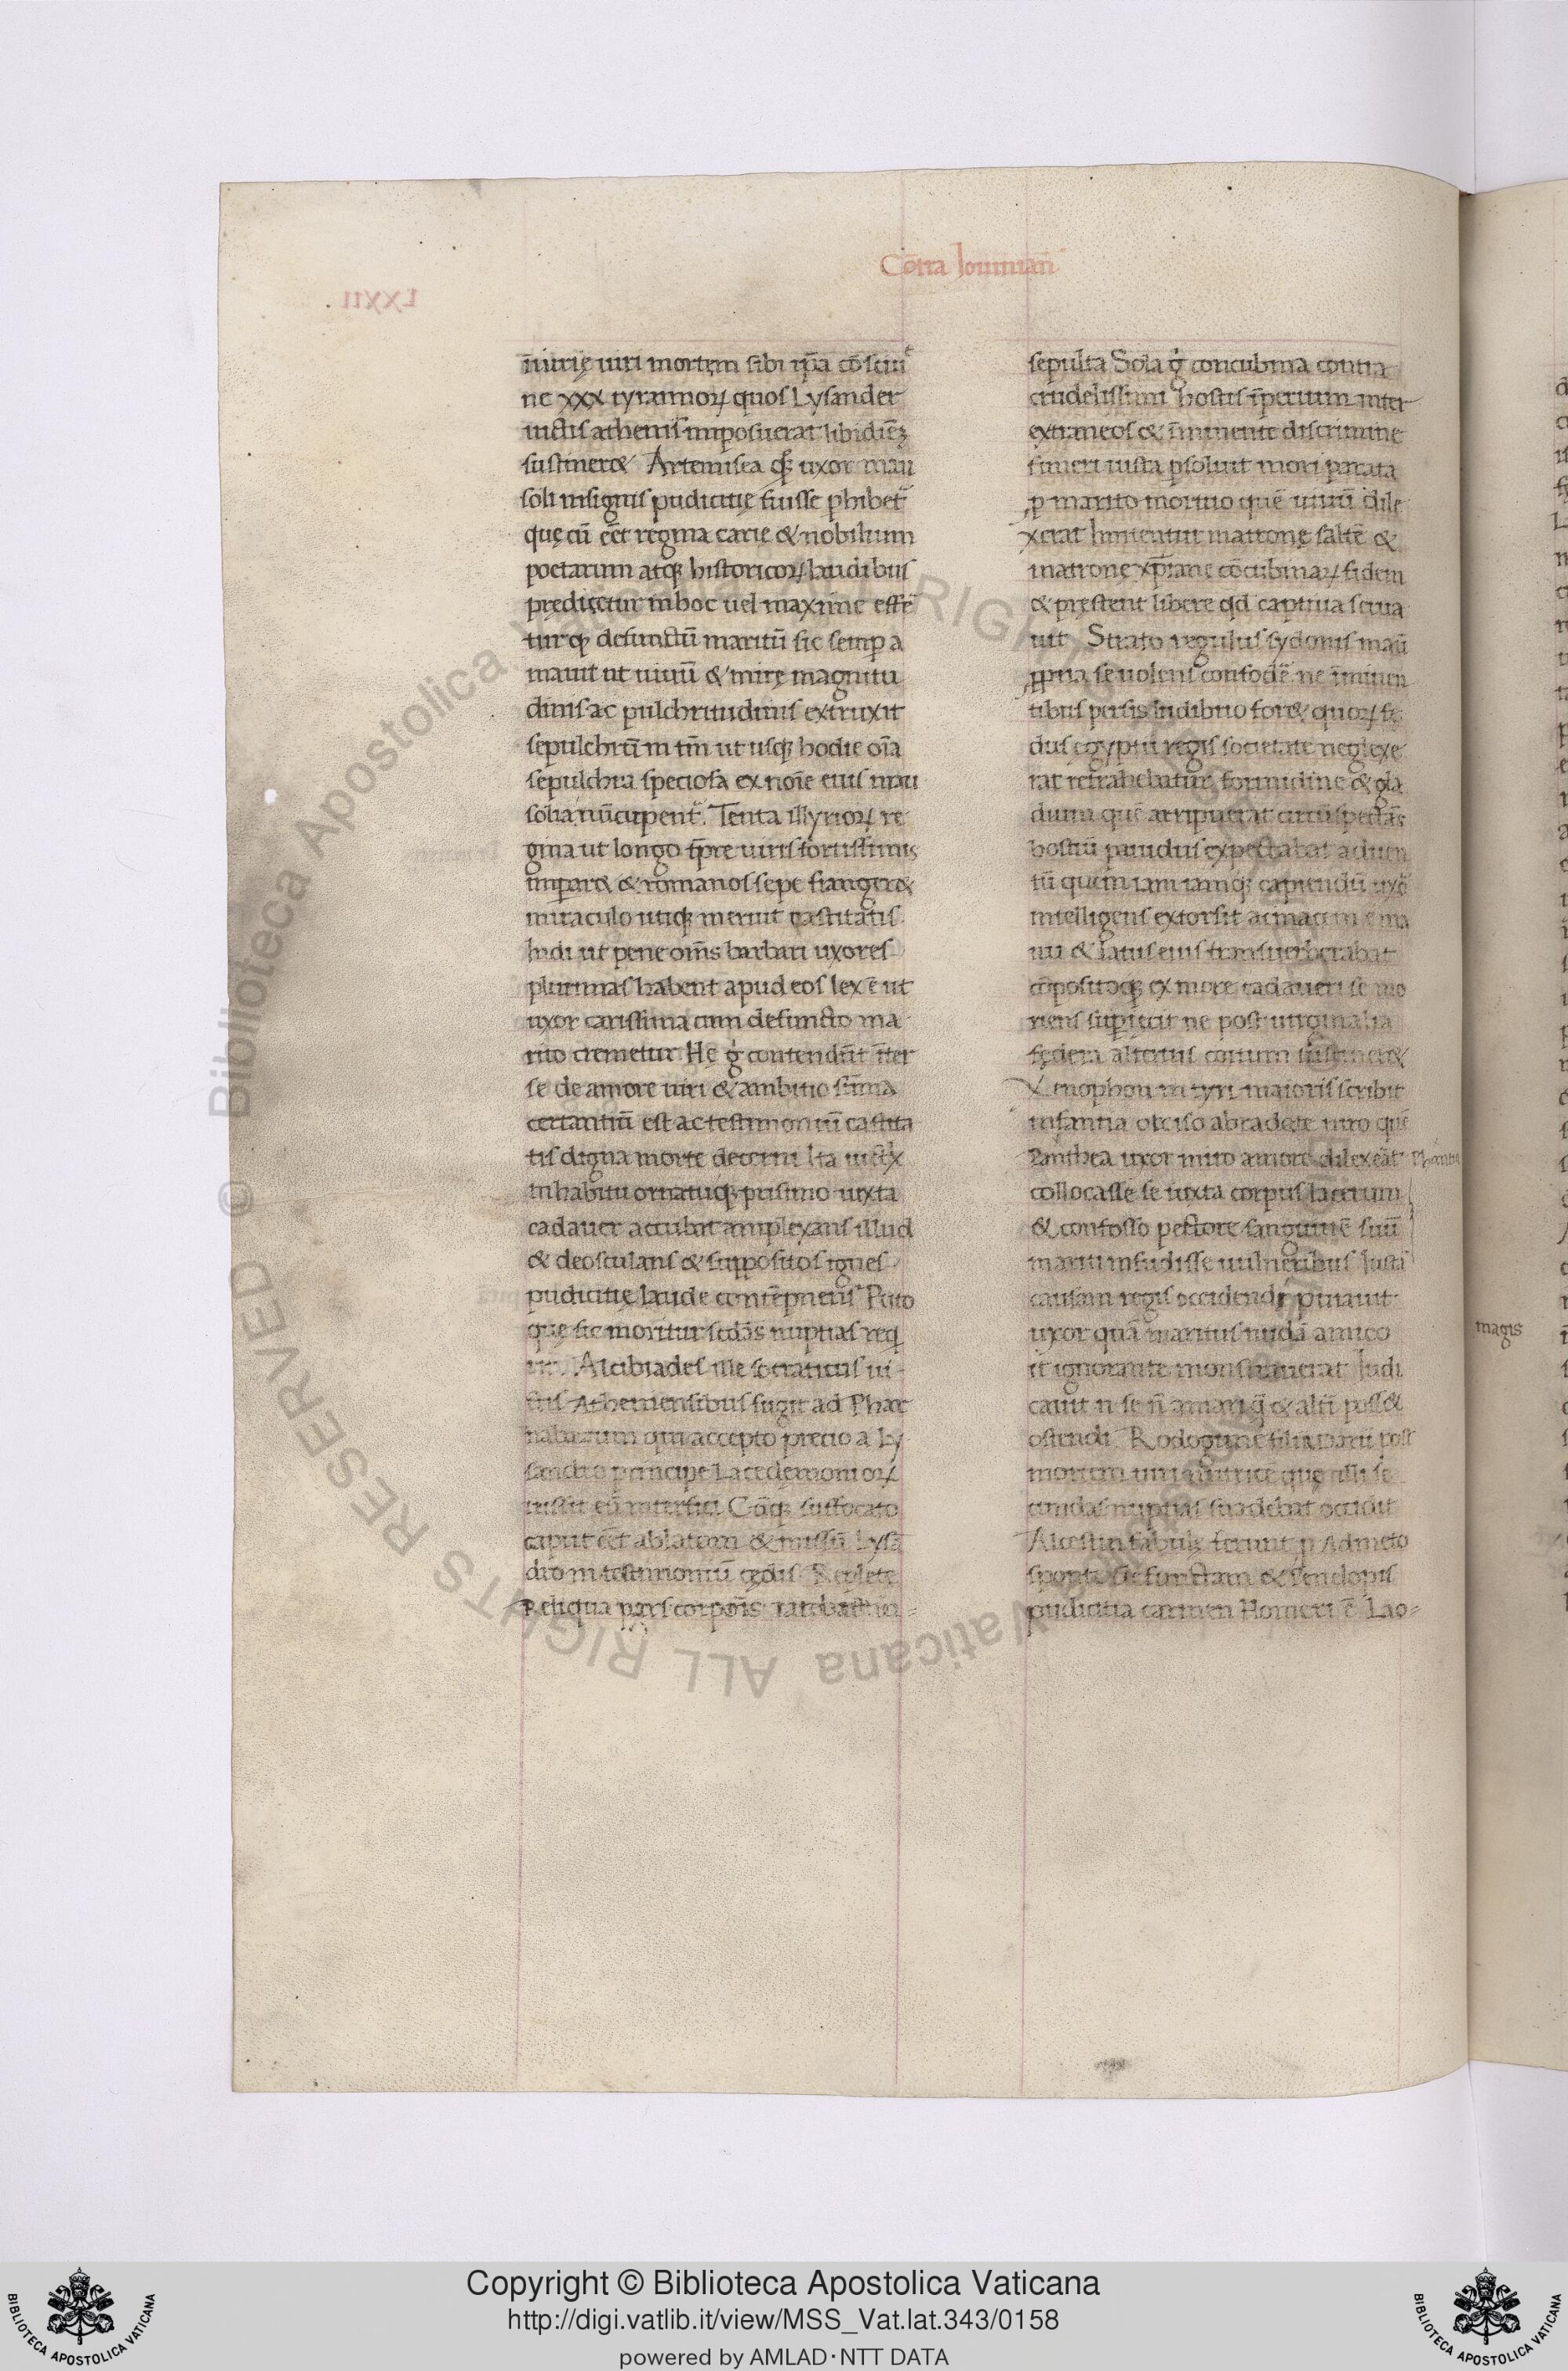 Cõtra Iouinianũ
LXXII
iniurię uiri mortem sibi ip̃a cõsciuĩt
ne xxx tyrannoꝝ quos Lysander
uictis athenis imposuerat libidiẽꝫ
sustineret Artemisea qꝫ uxor mau
soli insignis pudicitię fuisse phibet̃
que cũ eẽt regina carie & nobilium
poetarum atqꝫ historicoꝝ laudibus
predicetur inhoc uel maxime effẽ
turqꝫ defunctũ maritũ sic semp a
mauit ut uiuũ & mirę magnitu
dinis ac pulchritudinis extruxit
sepulchrũ in tm̃ ut usqꝫ hodie oĩa
sepulchra speciosa ex noĩe eius mau
solia nũcupent̃. Tenta illyrioꝝ re
gina ut longo tp̃re uiris fortissimis
imparet & romanos sepe frangeret
miraculo utiqꝫ meruit castitatis
Indi ut pene om̃s barbari uxores
plurimas habent apud eos lex ẽ ut
uxor carissima cum defuncto ma
rito cremetur Hę g̊ contendũt ĩter
se de amore uiri & ambitio sũma
certantiũ est ac testimoniũ castita
tis digna morte decerni Ita uictx̃
inhabitu ornatuqꝫ pristino iuxta
cadauer accubat amplexans illud
& deosculans & suppositos ignes
pudicitię laude contẽpnens Puto
quę sic moritur scdãs nuptias reqͥ
rit. Alcibiades ille socraticus ui
ctus Atheniensibus fugit ad Phar
nabazum qui accepto precio a Ly
sandro principe Lacedemonioꝝ
iussit eũ interfici Cũqꝫ suffocato
caput eẽt ablatum & missũ Lysã
dro in testimoniũ cędis
Reliqua pars corporis
sepulta Sola g̊ concubina contra
crudelissimi hostis ĩperium inter
extraneos & ĩminente discrimine
funeri iusta psoluit mori parata
p marito mortuo quẽ uiuũ dile
xerat Imitentur matronę saltẽ &
matronę xp̃iane cõcubinaꝝ fidem
& pręstent libere qd̃ captiua serua
uit Strato regulus sydonis manũ
ppria se uolens confodẽ ne ĩminen
tibus persis ludibrio foret quoꝝ fę
dus egyptii regis societate neglexe
rat retrahebatur formidine & gla
dium quẽ arripuerat circũspectãs
hostiũ pauidus expectabat aduen
tũ quem iam iamqꝫ capiendũ uxõ
intelligens extorsit acinacin e ma
nu & latus eius transuerberabat
cõpositoqꝫ ex more cadaueri se mo
riens supiecit ne post uirginalia
fędera alterius coitum sustineret
Xenophon in cyri maioris scribit
infantia occiso abradate uiro quẽ
Panthea uxor miro amore dilexeãt
collocasse se iuxta corpus lacerum
& confosso pectore sanguinẽ suũ
mariti infudisse uulneribus Iustã
causam regis occidendi putauit
uxor quã maritus nudã amico
et ignorante monstrauerat Iudi
cauit n se ñ amari q̃ & altĩ posset
ostendi Rodogune filia Darii post
mortem uiri nutricẽ quę illi se
cundas nuptias suadebat occidit
Alcestin fabulę ferunt p Admeto
sponte defunctam & Penelopis
pudicitia carmen Homeri ẽ Lao
magis
© Biblioteca Apostolica Vaticana ALL RIGHTS RESERVED
Copyright © Biblioteca Apostolica Vaticana
http://digi.vatlib.it/view/MSS_Vat.lat.343/0158
powered by AMLAD·NTT DATA
BIBLIOTECA APOSTOLICA VATICANA
BIBLIOTECA APOSTOLICA VATICANA